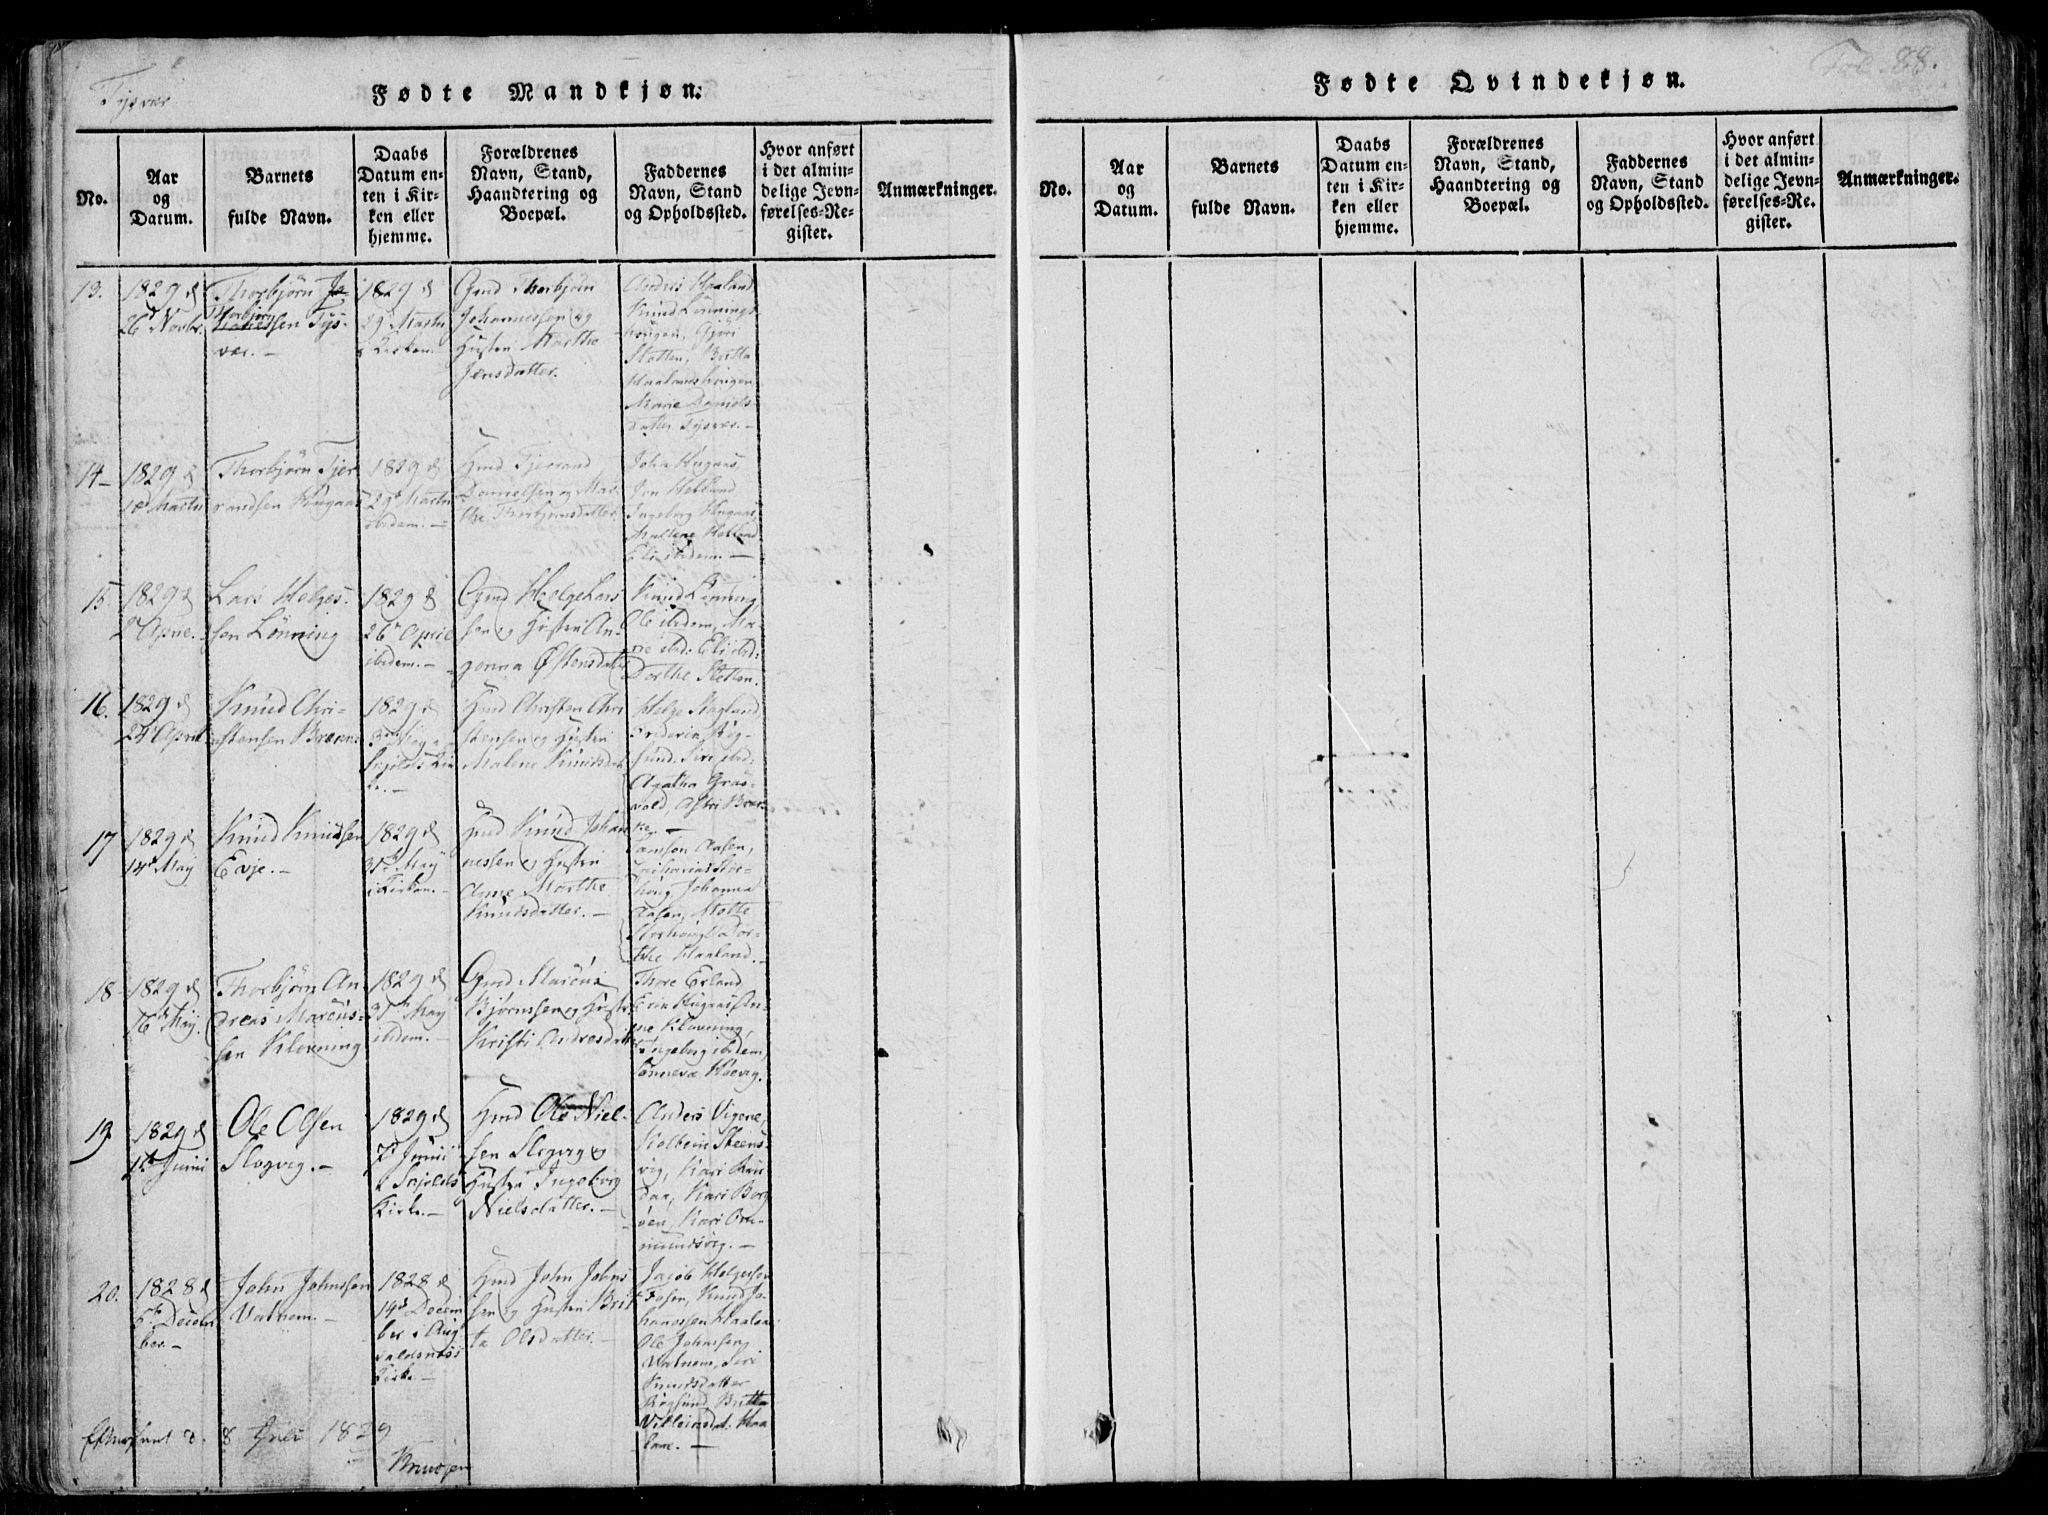 Tysvær
Fol. 88.
Fødte Mandkjøn.
No.
Aar
og
Datum.
Barnets
fulde Navn.
Daabs
Datum en-
ten i Kir-
ken eller
hjemme.
Forældrenes
Navn, Stand,
Haandtering og
Boepæl.
Faddernes
Navn, Stand
og Opholdssted.
Hvor anført
i det almin-
delige Jevn-
førelses-Re-
gister.
Anmærkninger.
13.
1829 d
26 Novbr.
Thorbjørn Jo-
Thorbjørn
hannessen Tys-
vær. –
1829 d
29 Martii
i Kirken.
Gmd Thorbjørn
Johannessen og
Hustru Marthe
Jensdatter.
Andres Haaland
Knud Lønnings-
hougen, Gjøri
Sletten, Britta
Haalandshougen
Marie Daniels-
datter Tysvær. –
14 –
1829 d
18 Martii
Thorbjørn Tjer-
randsen Hugaas
1829 d
29 Martii
ibidem. –
Hmd Tjerrand
Danielsen og Mar-
the Thorbjørnsdatter.
John Hugaas,
Jon Hetland
Ingeborg Hugaas,
Malene Hetland
Eli ibidem. –
15.
1829 d
2 April.
Lars Helges-
sen Lønning
1829 d
26 April
ibidem. –
Gmd Helge Lars-
sen og Hustru An-
genna Østensdatter
Knud Lønning,
Ole ibidem, Ma-
rie ibd: Eli ibd:
Dorthe Sletten.
16.
1829 d
24 April
Knud Chri-
stensen Brænne
1829 d
3 May
Skjolds Kir-
ke. –
Hmd Christen Chri-
stensen og Hustru
Malene Knudsdat
Helge Stagland
Friderich Røg-
sund, Siri ibd:
Agatha Græs-
vold, Astri Bræk-
ke. –
17
1829 d
14 May
Knud Knudsen
Evje. –
1829 d
31 May
i Kirken. –
Hmd Knud Johan-
nessen og Hustru
Anne Marthe
Knudsdatter. –
Samson Aasen,
Zacharias Stor-
houg, Johanna
Aasen, Mette
Storhoug Dor-
the Haaland. –
18
1829 d
16 May.
Thorbjørn An-
dreas Marcus-
sen Klovning
1829 d
31 May
ibidem. –
Gmd Marcus
Bjørnssen og Hustr
Kristi Andresdatter
Thore Erland
Erik Hugaas Sten-
ne Klovning,
Ingeborg ibidem,
Synneva Høevig.
19
1829 d
1 Junii
Ole Olsen
Slogvig. –
1829 d
7 Junii
i Skjolds
Kirke. –
Hmd Ole Niel-
sen Slogvig og
Hustru Ingeborg
Nielsdatter. –
Anders Vigene,
Kolbein Steens-
vig, Kari Kin-
daa, Kari Borg-
øen, Kari Om-
mundsvig. –
20.
1828 d
6 Decem-
ber. –
John Johnssen
Vatnem. –
1828 d
14 Decem-
ber i Aug-
valdsnæss
Kirke. –
Hmd John Johns-
sen og Hustru Brit-
ta Olsdatter. –
Jacob Helgessen
Fosen, Knud Jo-
hannssen Haalan
Ole Johnssen
Vatnem, Siri
Knudsdatter
Røgsund, Britta
Villumsdat. Haa-
land. –
Efterseet d. 8 Juli 1829
Knudsen
Fødte Qvindekjøn.
No.
Aar
og
Datum.
Barnets
fulde Navn.
Daabs
Datum en-
ten i Kir-
ken eller
hjemme.
Forældrenes
Navn, Stand,
Haandtering og
Boepæl.
Faddernes
Navn, Stand
og Opholdssted.
Hvor anført
i det almin-
delige Jevn-
førelses-Re-
gister.
Anmærkninger.